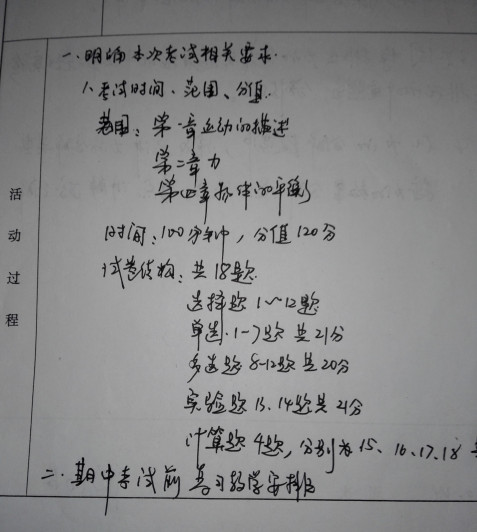 一、明确本次考试相关要求.
1、考试时间、范围、分值.
范围: 第一章运动的描述
第二章力
第四章物体的平衡
时间:100分钟,分值120分
试卷结构:共18题.
选择题1~12题
单选.1-7题 共21分
多选题 8-12题 共20分
实验题 13、14题 共21分
计算题 4题,分别为15、16、17、18
二、期中考试前复习教学安排
活动过程